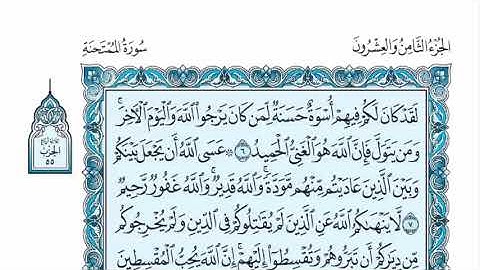 الجُزْءُ الثَّامِنُ وَالعِشْرُونَ
سُورَةُ المُمْتَحنَةِ
لَقَدْ كَانَ لَكُمْ فِيهِمْ أُسْوَةٌ حَسَنَةٌ لِّمَن كَانَ يَرْجُوا۟ ٱللَّهَ وَٱلْيَوْمَ ٱلْءَاخِرَ ۚ
وَمَن يَتَوَلَّ فَإِنَّ ٱللَّهَ هُوَ ٱلْغَنِىُّ ٱلْحَمِيدُ ٦ ۞ عَسَى ٱللَّهُ أَن يَجْعَلَ بَيْنَكُمْ
وَبَيْنَ ٱلَّذِينَ عَادَيْتُم مِّنْهُم مَّوَدَّةً ۚ وَٱللَّهُ قَدِيرٌ ۚ وَٱللَّهُ غَفُورٌ رَّحِيمٌ
٧ لَّا يَنْهَىٰكُمُ ٱللَّهُ عَنِ ٱلَّذِينَ لَمْ يُقَٰتِلُوكُمْ فِى ٱلدِّينِ وَلَمْ يُخْرِجُوكُم
مِّن دِيَٰرِكُمْ أَن تَبَرُّوهُمْ وَتُقْسِطُوٓا۟ إِلَيْهِمْ ۚ إِنَّ ٱللَّهَ يُحِبُّ ٱلْمُقْسِطِينَ
الحِزْب
٥٥